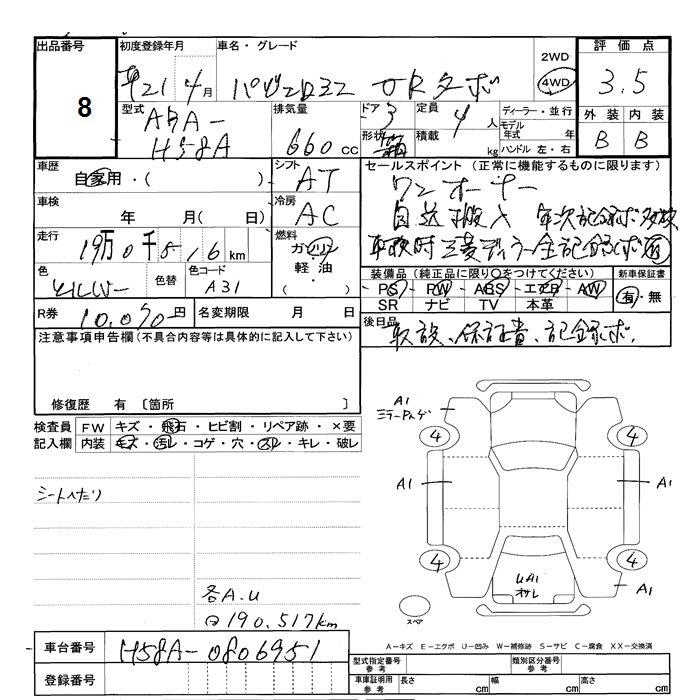 出品番号 初度登録年月 車名・グレード 2WD 評価点
8 平21年4月 パジェロミニ VRターボ 4WD 3.5
型式 排気量 ドア 3 定員 4人 ディーラー・並行 外装 内装
ABA- モデル年式 年 B B
H58A 660cc 形状 箱 積載 kg ハンドル 左・右
車歴 シフト セールスポイント (正常に機能するものに限ります)
自家用・( ) AT ワンオーナー
車検 冷房 自送搬入 年次記録ボ 取扱
年 月(日) AC
走行 燃料 車検時三菱ディーラー全記録ボ 有
19万0千516km ガソリン
色 色替 色コード 軽油 装備品 (純正品に限り○をつけてください) 新車保証書
シルバー A31 ・( ) PS・PW・ABS・エアB・AW 有・無
SR ナビ TV 本革
R券 10,090円 名変期限 月 日 後日品
注意事項申告欄(不具合内容等は具体的に記入して下さい) 取説、保証書、記録ボ.
修復歴 有〔箇所 〕
検査員 FW キズ・飛石・ヒビ割・リペア跡・×要
記入欄 内装 キズ・汚レ・コゲ・穴・スレ・キレ・破レ
A1
4 4
シートヘたり
A1 A1
4 4
UA1 A1
各A.U オサレ
190,517km スペア
A-キズ E-エクボ U-凹み W-補修跡 S-サビ C-腐食 XX-交換済
車台番号 H58A-0806951 型式指定番号 参考 類別区分番号 参考
登録番号 車庫証明用 参考 長さ cm 幅 cm 高さ cm